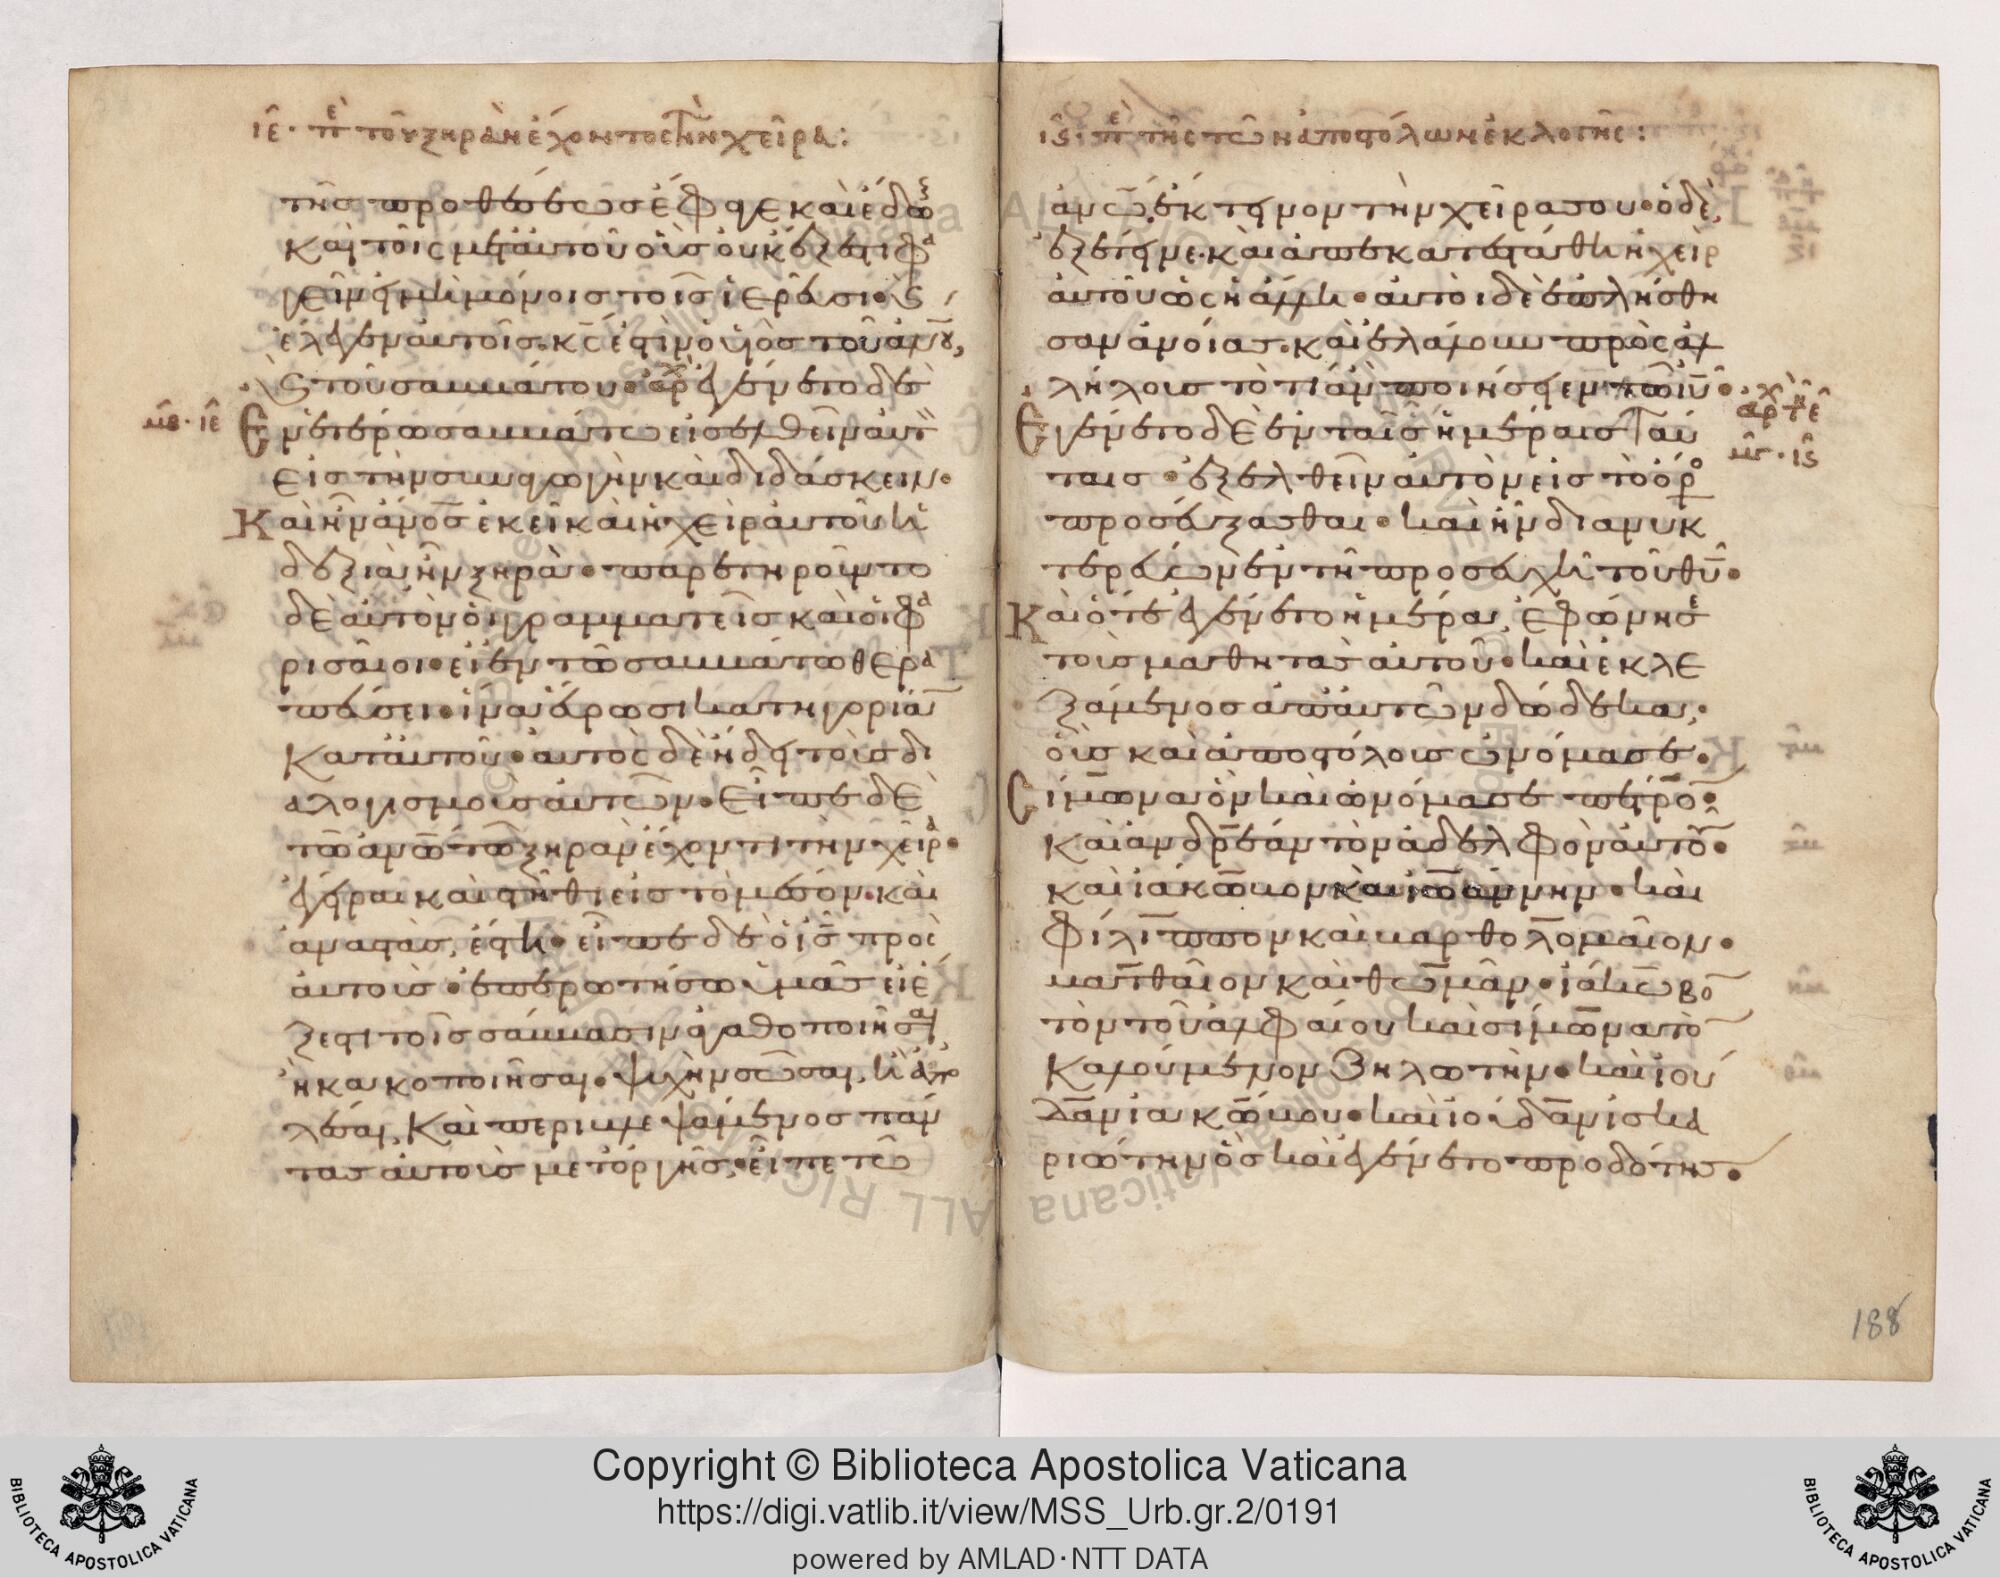 ιε· πε τοῦ ξηρὰν ἔχοντος τὴν χεῖρα:
τῆς προθέσεως ἔφαγε καὶ ἔδωκ
καὶ τοῖς μετ' αὐτοῦ οὓς οὐκ ἔξεστι φα
γεῖν εἰ μὴ μόνοις τοῖς ἱερεῦσι· ϛ
ἔλεγεν αὐτοῖς. κς ἐστιν ὁ υἱὸς τοῦ ἀνου,
ϛ τοῦ σαββάτου· ἐγένετο δὲ
μβ· ιε
Ἐν ἑτέρω σαββάτω εἰσελθεῖν αὐτ
εἰς τὴν συναγωγὴν καὶ διδάσκειν·
Καὶ ἦν ἄνος ἐκεῖ καὶ ἡ χεὶρ αὐτοῦ ἡ
δεξιὰ ἦν ξηρά· παρετηροῦντο
δὲ αὐτὸν οἱ γραμματεῖς καὶ οἱ φα
ρισαῖοι· εἰ ἐν τῶ σαββάτω θερα
πεύσει· ἵνα εὕρωσι κατηγορίαν
κατ' αὐτοῦ· αὐτὸς δὲ ἤδει τοὺς δι
αλογισμοὺς αὐτῶν· Εἶπε δὲ
τῶ ἀνω τῶ ξηρὰν ἔχοντι τὴν χεῖρα·
ἔγειραι καὶ στῆθι εἰς τὸ μέσον. καὶ
ἀναστὰς, ἔστη· εἶπε δὲ ὁ ις πρὸς
αὐτούς· ἐπερωτήσω ὑμᾶς εἰ ἔ
ξεστι τοῖς σάββασιν ἀγαθοποιῆσαι
ἢ κακοποιῆσαι· ψυχὴν σῶσαι, ἢ ἀπο
λέσαι, Καὶ περιβλεψάμενος πάν
τας αὐτοὺς μετ' ὀργῆς, εἶπε τῶ
ιϛ· πε τῆς τῶν ἀποστόλων ἐκλογῆς:
ἀνω, ἔκτεινον τὴν χεῖρα σου· ὁ δὲ,
ἐξέτεινε· καὶ ἀποκατεστάθη ἡ χεὶρ
αὐτοῦ ὡς ἡ ἄλλη· αὐτοὶ δὲ ἐπλήσθη
σαν ἀνοίας· καὶ ἐλάλουν πρὸς ἀλ
λήλους τὸ τί ἂν ποιήσειεν τῶ ιυ·
Ἐγένετο δὲ ἐν ταῖς ἡμέραις ταύ
μγ· ιϛ
ταις· ἐξελθεῖν αὐτὸν εἰς τὸ ὄρο
προσεύξασθαι· καὶ ἦν διανυκ
τερεύων ἐν τῆ προσευχῆ τοῦ θυ·
Καὶ ὅτε ἐγένετο ἡμέρα, ἐφώνησε
τοὺς μαθητὰς αὐτοῦ· καὶ ἐκλε
ξάμενος ἀπ' αὐτῶν δώδεκα,
οὓς καὶ ἀποστόλους ὠνόμασε·
Σίμωνα ὃν καὶ ὠνόμασε πέτρον·
Καὶ ἀνδρέαν τὸν ἀδελφὸν αὐτοῦ·
καὶ ἰάκωβον καὶ ἰωάννην· καὶ
Φίλιππον καὶ βαρθολομαῖον·
ματθαῖον καὶ θωμᾶν· ἰάκωβο
τὸν τοῦ ἀλφαίου καὶ σίμωνα τὸ
Καλούμενον Ζηλωτήν· καὶ ἰού
δαν ἰακώβου· καὶ ἰούδαν ἰσκα
ριώτην ὃς καὶ ἐγένετο προδότης·
188
Copyright © Biblioteca Apostolica Vaticana
https://digi.vatlib.it/view/MSS_Urb.gr.2/0191
powered by AMLAD·NTT DATA
BIBLIOTECA APOSTOLICA VATICANA
BIBLIOTECA APOSTOLICA VATICANA